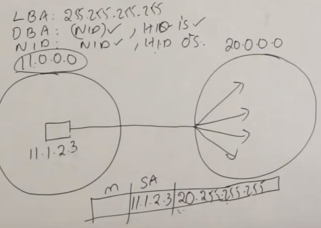 LBA: 255.255.255.255
DBA: (NID)✓, HID 1s✓
NID: NID✓, HID 0s.
11.0.0.0
20.0.0.0
11.1.2.3
m SA
11.1.2.3 20.255.255.255